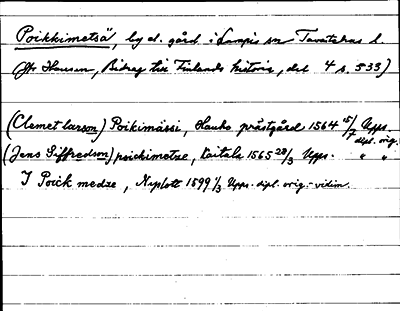 Poikkimetsä, by el. gård i Lampis sn Tavastehus l.
(Jfr Hausen, Bidrag till Finlands historia, del 4 s. 533)
(Clemet larson) Poikimässi, Hauho prästgård 1564 15/7 Upps. dipl. orig.
(Jens Siffredson) poickimetze, Loitala 1565 28/3 Upps. " "
I Poick medze, Nyslott 1599 1/3 Upps. dipl. orig.-vidim.